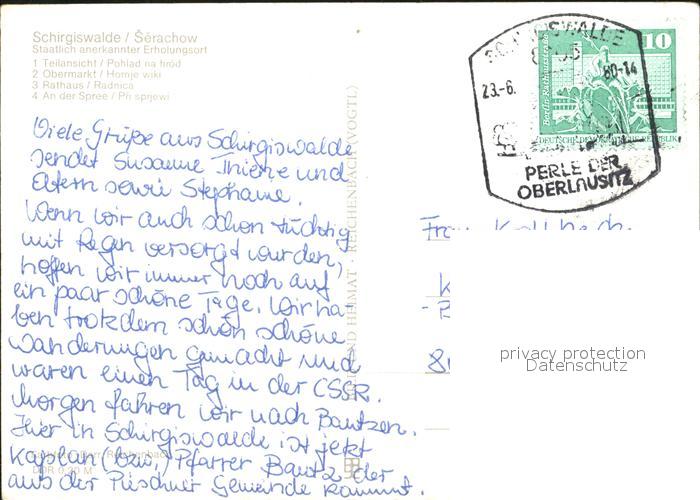 Schirgiswalde / Šěrachow
Staatlich anerkannter Erholungsort
1 Teilansicht / Pohlad na hród
2 Obermarkt / Hornje wiki
3 Rathaus / Radnica
4 An der Spree / Při sprjewi
Viele Grüße aus Schirgiswalde
sendet Susanne Thiere und
Eltern sowie Stephanie.
Wenn wir auch schon tüchtig
mit Regen versorgt wurden,
hoffen wir immer noch auf
ein paar schöne Tage. Wir ha-
ben trotzdem schon schöne
Wanderungen gemacht und
waren einen Tag in der CSSR.
Morgen fahren wir nach Bautzen.
Hier in Schirgiswalde ist jetzt
Kaplan (bzw.) Pfarrer Bautz, der
aus der Gemeinde kommt.
DDR 0,20 M
UND HEIMAT · REICHENBACH (VOGTL)
23.-6. 80-14
10
Berlin, Rathausstraße
DEUTSCHE DEMOKRATISCHE REPUBLIK
PERLE DER
OBERLAUSITZ
privacy protection
Datenschutz